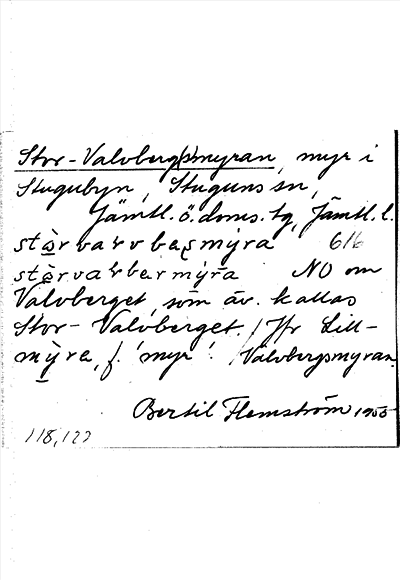 Stor-Valvberg(s)myran, myr i
Stugubyn, Stuguns sn,
Jämtl. ö. doms. tg, Jämtl. l.
stòrvaṛvbeṣmýra 616
stòrvaṛbermýra NO om
Valvberget, som äv. kallas
Stor-Valvberget. / Jfr Lill-
mỳra, f. 'myr'. / Valvbergsmyran.
Bertil Flemström 1955
118,122